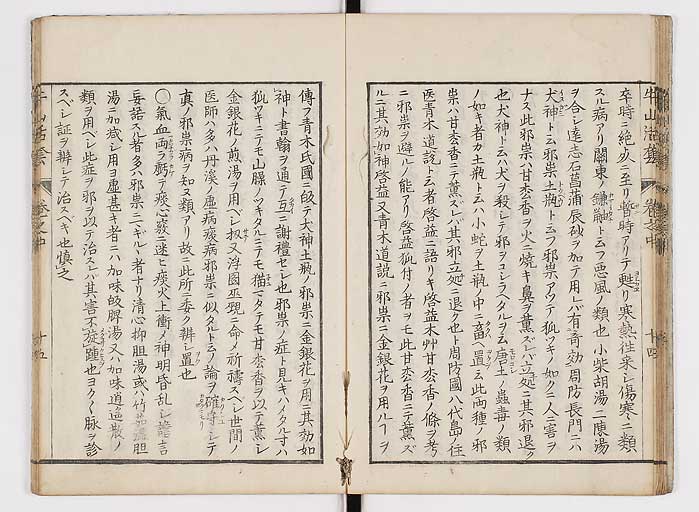 卒時ニ絶ﾉ乄ニ至リ暫時アリテ甦リ寒熱往来シ傷寒ニ類
スル病アリ關東ノ鎌鼬ト云フ悪風ノ類也小柴胡湯二陳湯
ヲ合シ遠志石菖蒲辰砂ヲ加テ用レバ有奇効周防長門ニハ
犬神ト云邪祟土瓶ト云フ邪祟アツテ狐ツキノ如ク二人ニ害ヲ
ナス此邪祟ハ甘松香ヲ火ニ焼キ鼻ヲ薫ズレバ立処ニ其邪退ク
也犬神ト云ハ犬ヲ殺シテ邪ヲコシラヘタルヲ云唐土ノ蟲毒ノ類
ノ如キ者カ土瓶ト云ハ小蛇ヲ土瓶ノ中ニ畜置ト云此両種ノ邪
祟ハ甘松香ニテ薫スレバ其邪立処ニ退ク也ト周防國八代島ノ住
医青木道説ト云者啓益ニ語リキ啓益本艸甘松香ノ條ヲ考
ニ邪祟ヲ避ルノ能アリ啓益狐付ノ者ヲモ此甘松香ニテ薫ズ
ルニ其効如神啓益又青木道説ニ邪祟ニ金銀花ヲ用ルコヲ
傳フ青木氏國ニ皈テ犬神土瓶ノ邪祟ニ金銀花ヲ用ニ其効如
神ト書翰ヲ通テ互ニ謝禮セシ也邪祟ノ症ト見キハメタル寸ハ
狐ツキニテモ山臊ノツキタルニテモ猫ニタタニテモ甘松香ヲ以テ薫シ
金銀花ノ煎湯ヲ用ベシ扨又浮図巫覡ニ命ノ祈祷スベシ世間ノ
医師ハ多ハ丹溪ノ虚病痰病邪祟ニ似タルト云ノ論ヲ確守シテ
真ノ邪祟病ヲ知ス類アリ故ニ此所ニ委ク辨シ置也
○氣血両ラ虧テ痰心竅ニ迷ヒ痰火上衝ノ神明昏乱シ譫言
妄語スル者多ハ邪祟ニマギルノ者ナリ清心抑胆湯或ハ竹茹温胆
湯ニ加減シ用ヨ虚甚キ者ニハ加味皈脾湯又ハ加味逍遥散ノ
類ヲ用ベシ此症ヲ邪ヲ以テ治スレバ其害不旋踵也ヨクヽ脉ヲ診
スベシ証ヲ辨シテ治スベキ也慎之
牛山活套 巻之中 十四
牛山活套 巻之中 十五